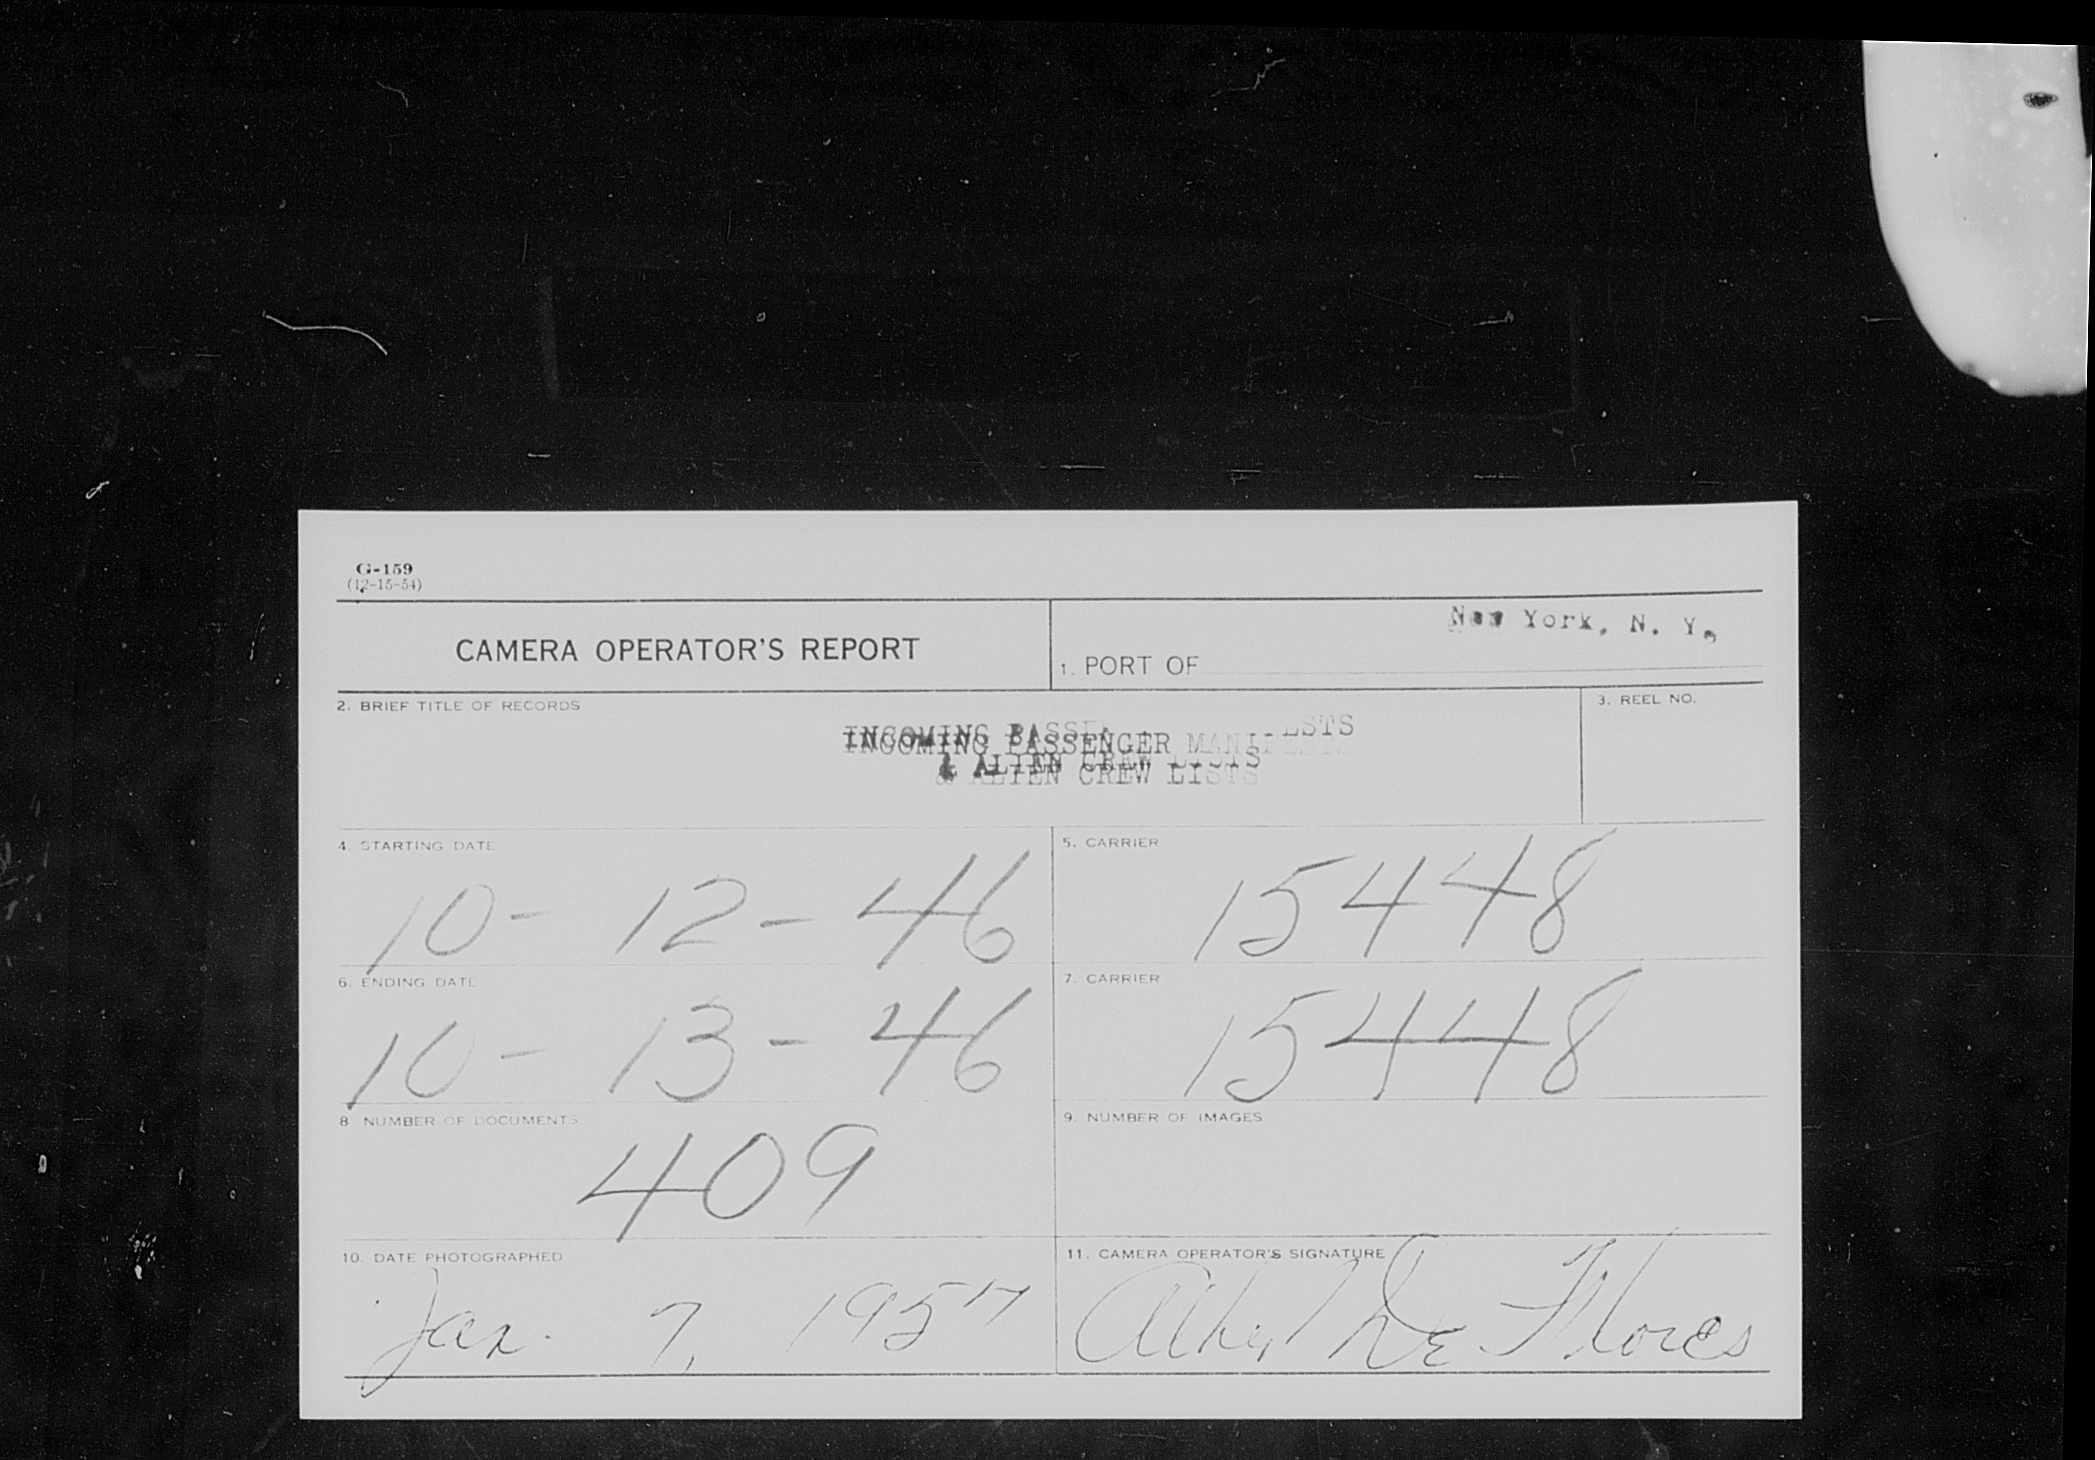 G-159
(12-15-54)
CAMERA OPERATOR'S REPORT
New York, N. Y.,
1. PORT OF
2. BRIEF TITLE OF RECORDS
3. REEL NO.
INCOMING PASSENGER MANIFESTS
& ALIEN CREW LISTS
4. STARTING DATE
10- 12-46
5. CARRIER
15448
6. ENDING DATE
10- 13-46
7. CARRIER
15448
8 NUMBER OF DOCUMENTS
409
9. NUMBER OF IMAGES
10. DATE PHOTOGRAPHED
Jan. 7, 1957
11. CAMERA OPERATOR'S SIGNATURE
De Flores